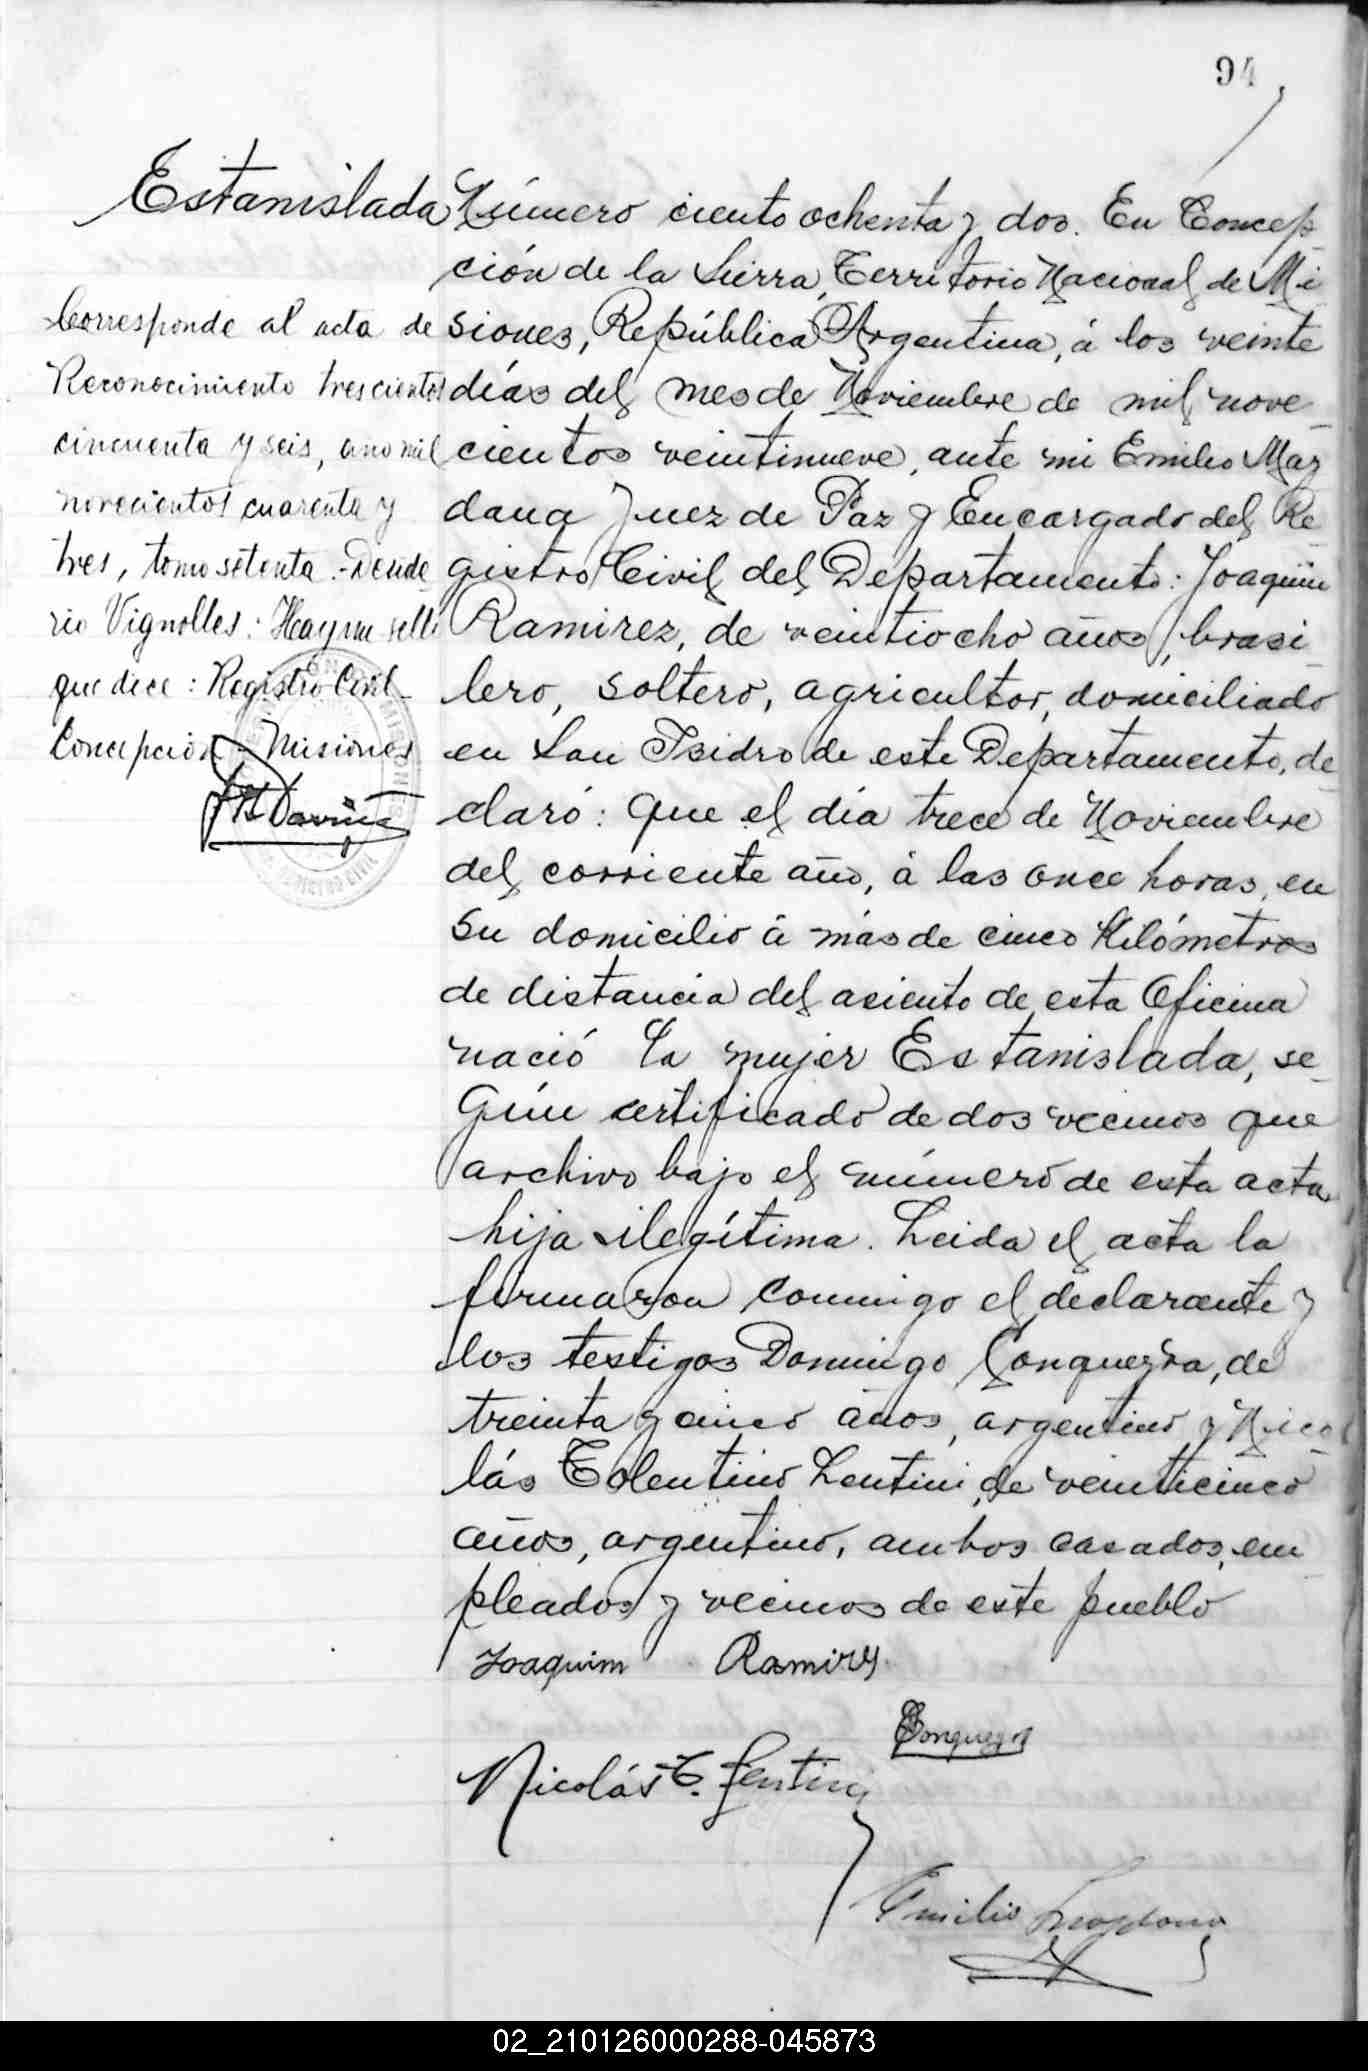 94
Estanislada
Corresponde al acta de
Reconocimiento trescientos
cincuenta y seis, ano mil
novecientos cuarenta y
tres, tomo setenta.- Deside
rio Vignolles: Hay un sello
que dice: Registro Civil_
Concepción - Misiones
Número ciento ochenta y dos. En Concep
ción de la Sierra, Territorio Nacional de Mi
siones, República Argentina, á los veinte
días del mes de Noviembre de mil nove
cientos veintinueve, ante mi Emilio Maz
dana Juez de Paz y Encargado del Re
gistro Civil del Departamento: Joaquin
Ramirez, de veintiocho años, brasi
lero, soltero, agricultor, domiciliado
en San Isidro de este Departamento, de
claró: Que el día trece de Noviembre
del corriente año, á las once horas, en
su domicilio á más de cinco Kilómetros
de distancia del asiento de esta Oficina
nació la mujer Estanislada, se
gún certificado de dos vecinos que
archivo bajo el número de esta acta
hija ilegítima. Leida el acta la
firmaron conmigo el declarante y
los testigos Domingo Conqueyra, de
treinta y cinco años, argentino y Nico
lás Tolentino Lentini, de veinticinco
años, argentino, ambos casados, em
pleados y vecinos de este pueblo
Joaquim Ramires
Nicolás T. Lentini
Emilio
02_210126000288-045873